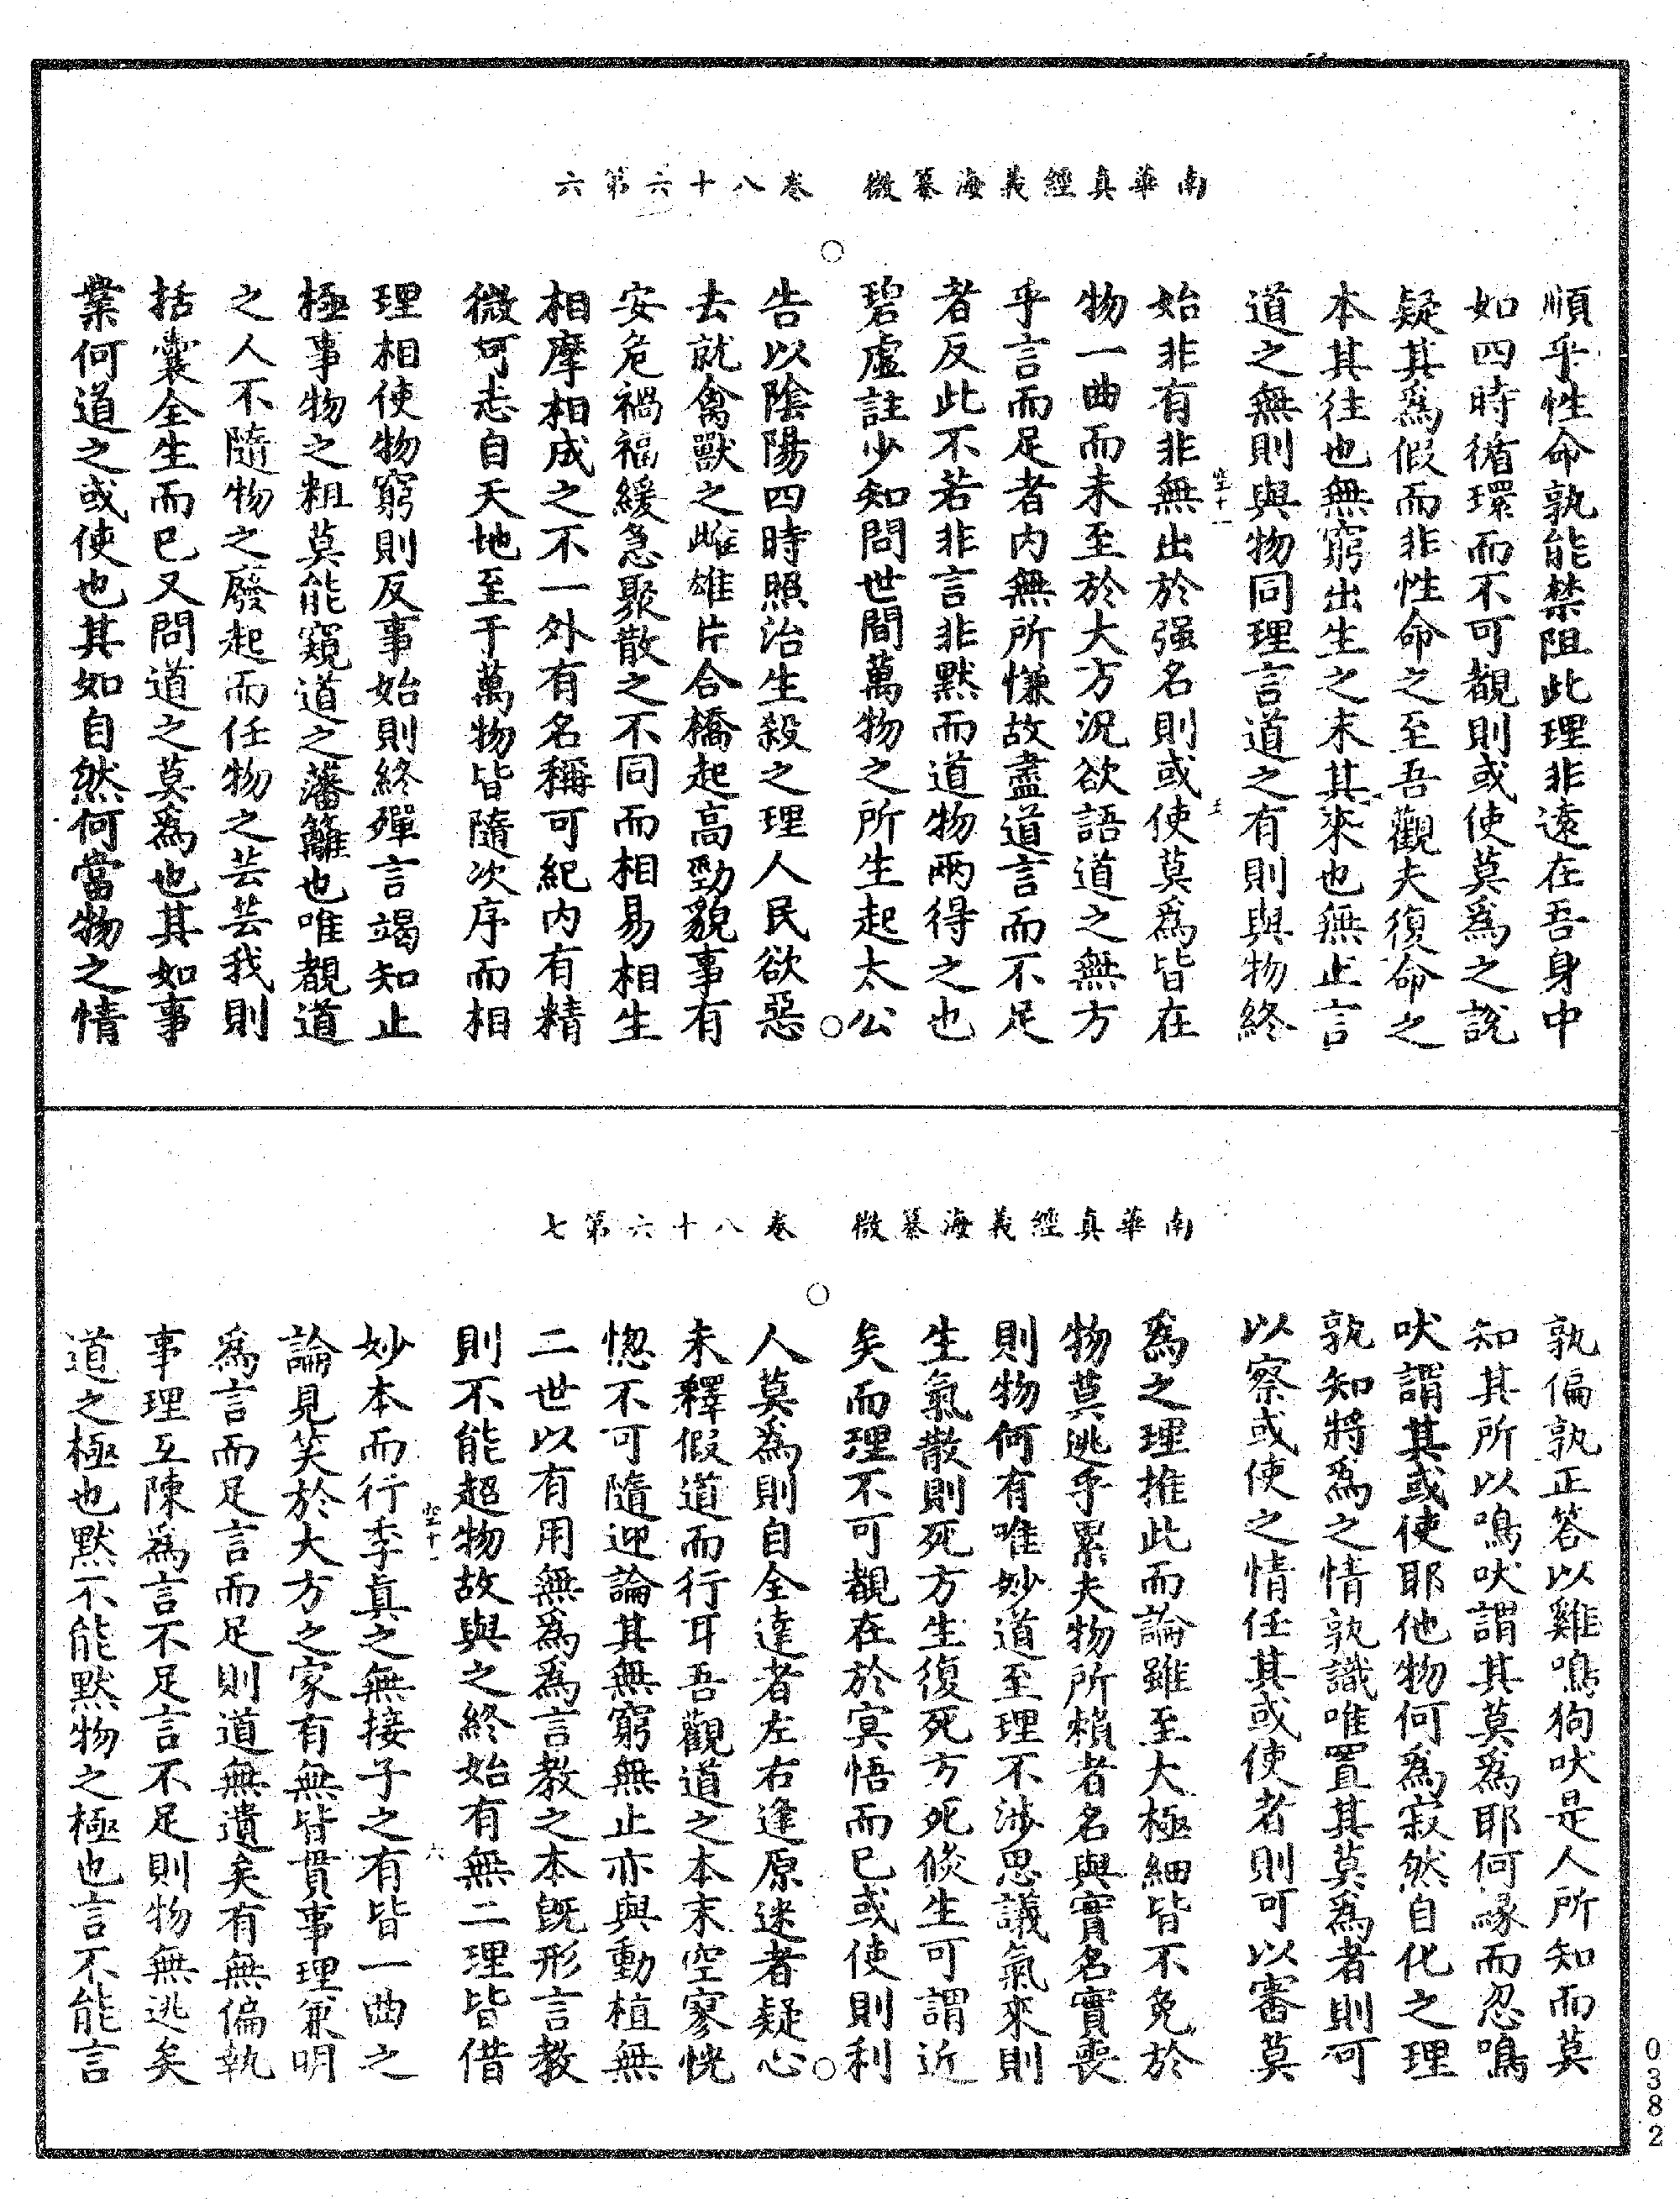 南華真經義海纂微　卷八十六第六
順乎性命孰能禁阻此理非遠在吾身中
如四時循環而不可覩則或使莫爲之說
疑其爲假而非性命之至吾觀夫復命之
本其往也無窮出生之末其來也無止言
道之無則與物同理言道之有則與物終
始非有非無出於强名則或使莫爲皆在
物一曲而未至於大方況欲語道之無方
乎言而足者内無所慊故盡道言而不足
者反此不若非言非默而道物兩得之也
碧虛註少知問世間萬物之所生起太公
告以陰陽四時照治生殺之理人民欲惡
去就禽獸之雌雄片合橋起高勁貌事有
安危禍福緩急聚散之不同而相易相生
相摩相成之不一外有名稱可紀内有精
微可志自天地至于萬物皆隨次序而相
理相使物窮則反事始則終殫言竭知止
極事物之粗莫能窺道之藩籬也唯覩道
之人不隨物之廢起而任物之芸芸我則
括囊全生而已又問道之莫爲也其如事
業何道之或使也其如自然何當物之情
空十一
五
南華真經義海纂微　卷八十六第七
孰偏孰正答以雞鳴狗吠是人所知而莫
知其所以鳴吠謂其莫爲耶何緣而忽鳴
吠謂其或使耶他物何爲寂然自化之理
孰知將爲之情孰識唯置其莫爲者則可
以察或使之情任其或使者則可以審莫
爲之理推此而論雖至大極細皆不免於
物莫逃乎累夫物所賴者名與實名實喪
則物何有唯妙道至理不涉思議氣來則
生氣散則死方生復死方死倐生可謂近
矣而理不可覩在於冥悟而已或使則利
人莫爲則自全達者左右逢原迷者疑心
未釋假道而行耳吾觀道之本末空寥恍
惚不可隨迎論其無窮無止亦與動植無
二世以有用無爲爲言教之本旣形言教
則不能超物故與之終始有無二理皆借
妙本而行季真之無接子之有皆一曲之
論見笑於大方之家有無皆貫事理兼明
爲言而足言而足則道無遺矣有無偏執
事理互陳爲言不足言不足則物無逃矣
道之極也默不能默物之極也言不能言
空十一
六
0382